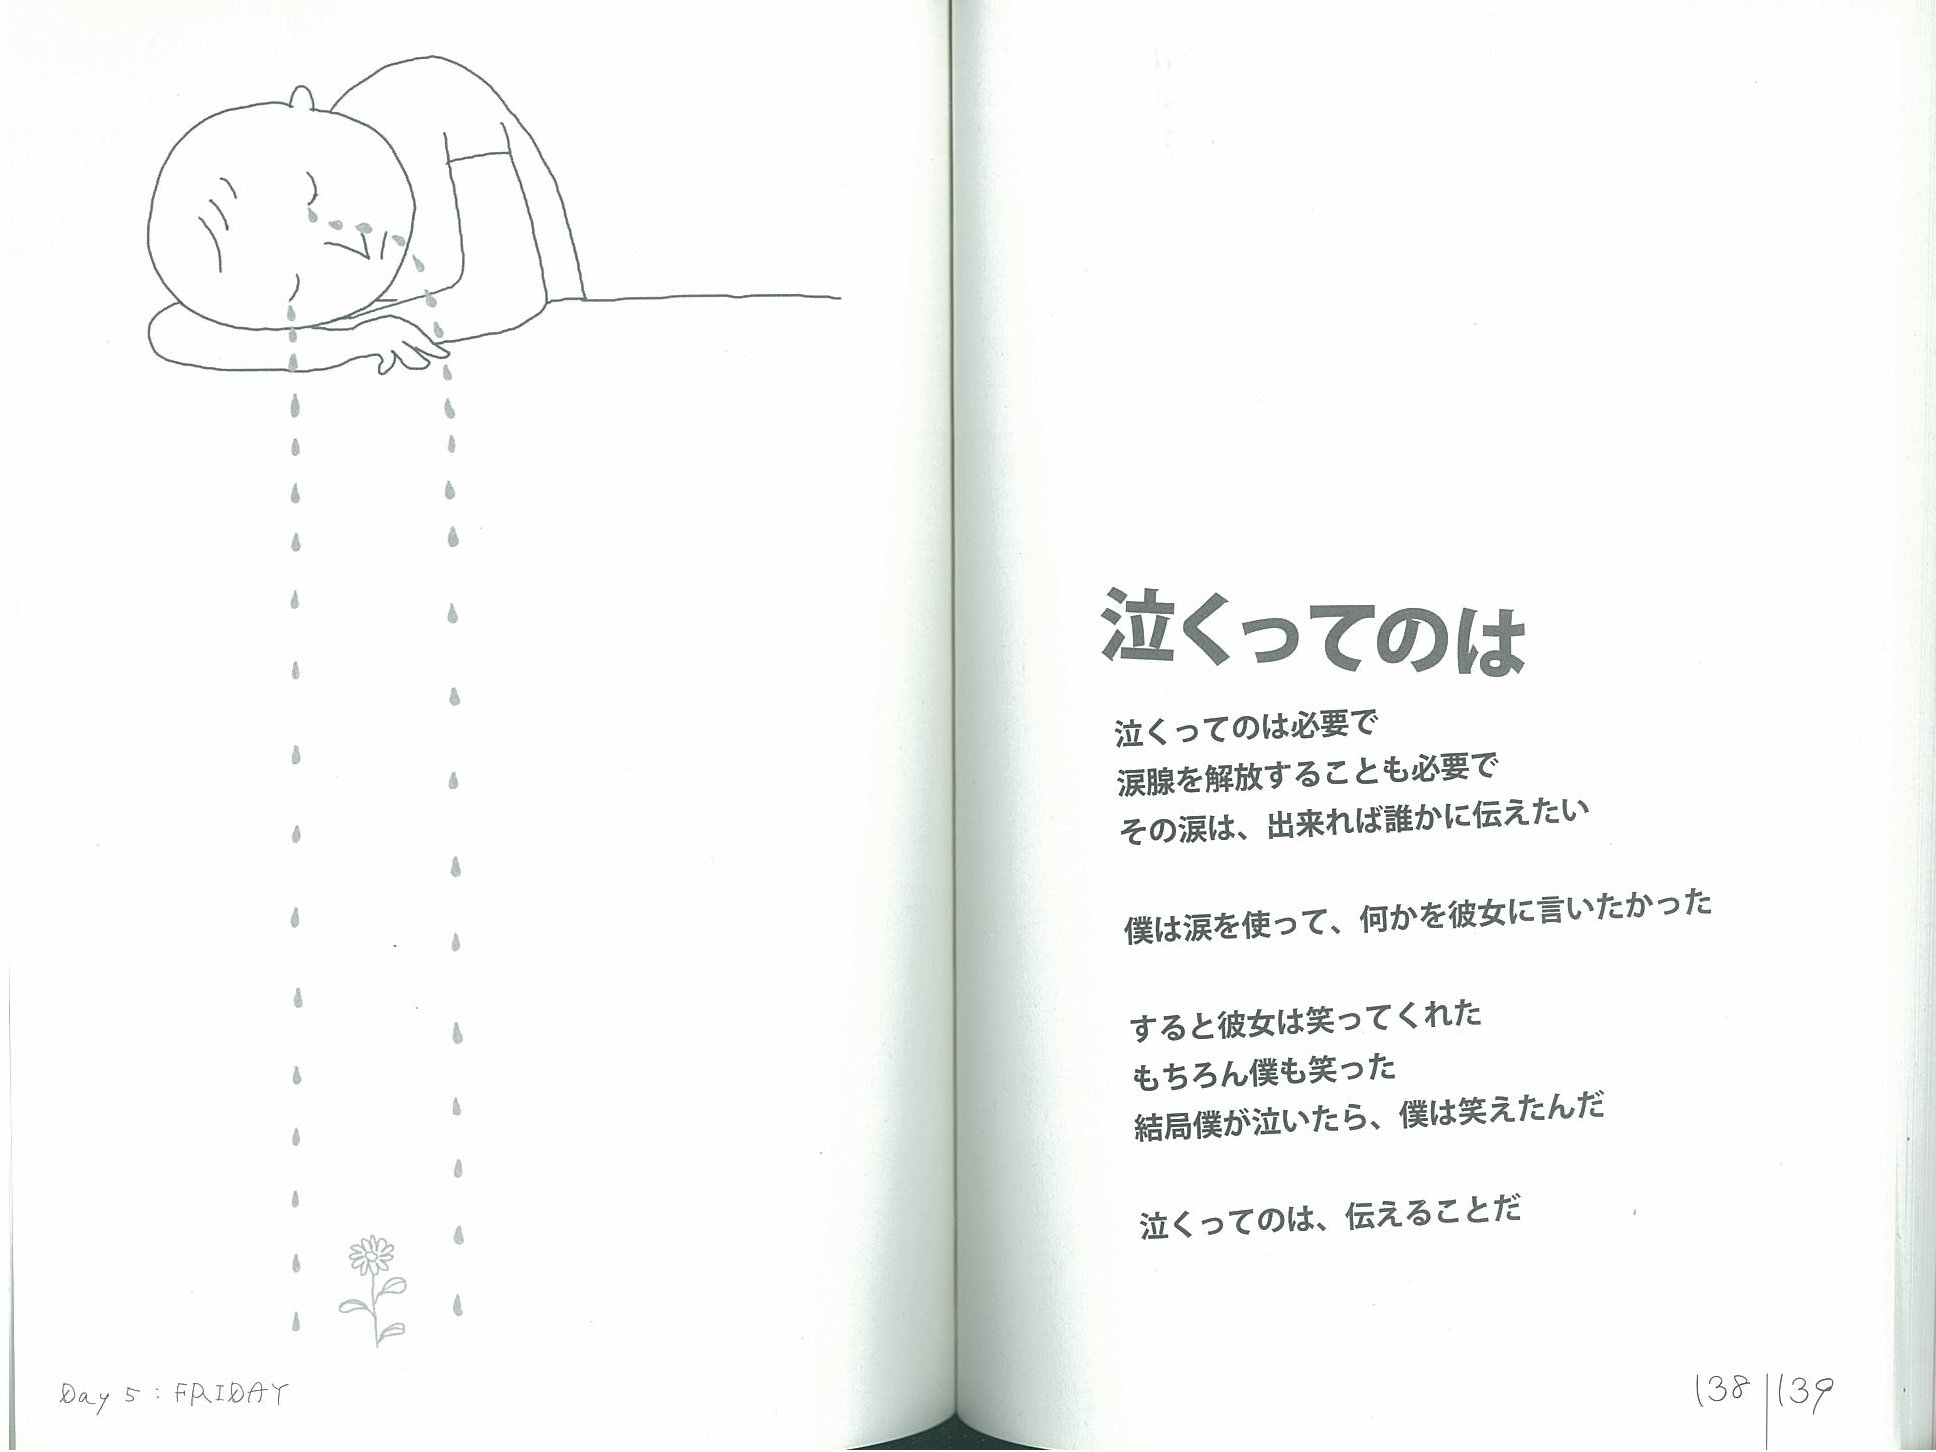 泣くってのは
泣くってのは必要で
涙腺を解放することも必要で
その涙は、出来れば誰かに伝えたい
僕は涙を使って、何かを彼女に言いたかった
すると彼女は笑ってくれた
もちろん僕も笑った
結局僕が泣いたら、僕は笑えたんだ
泣くってのは、伝えることだ
Day 5 : FRIDAY
138 | 139